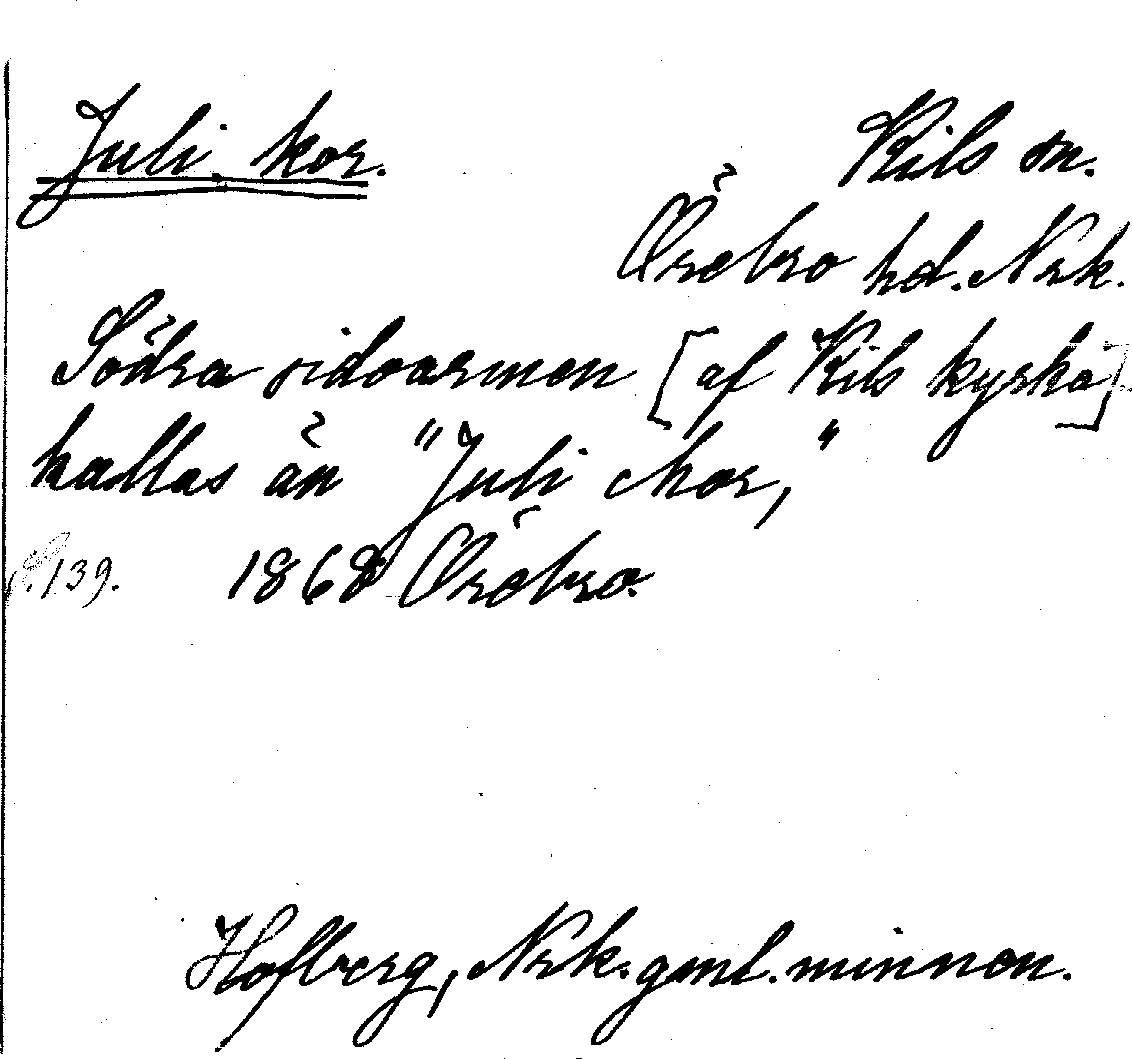 Juli kor.
Kils sn.
Örebro hd. Nrk.
Södra sidoarmen [af Kils kyrka]
kallas än "Juli chor,"
s. 139. 1868 Örebro.
Hofberg, Nrk. gml. minnen.